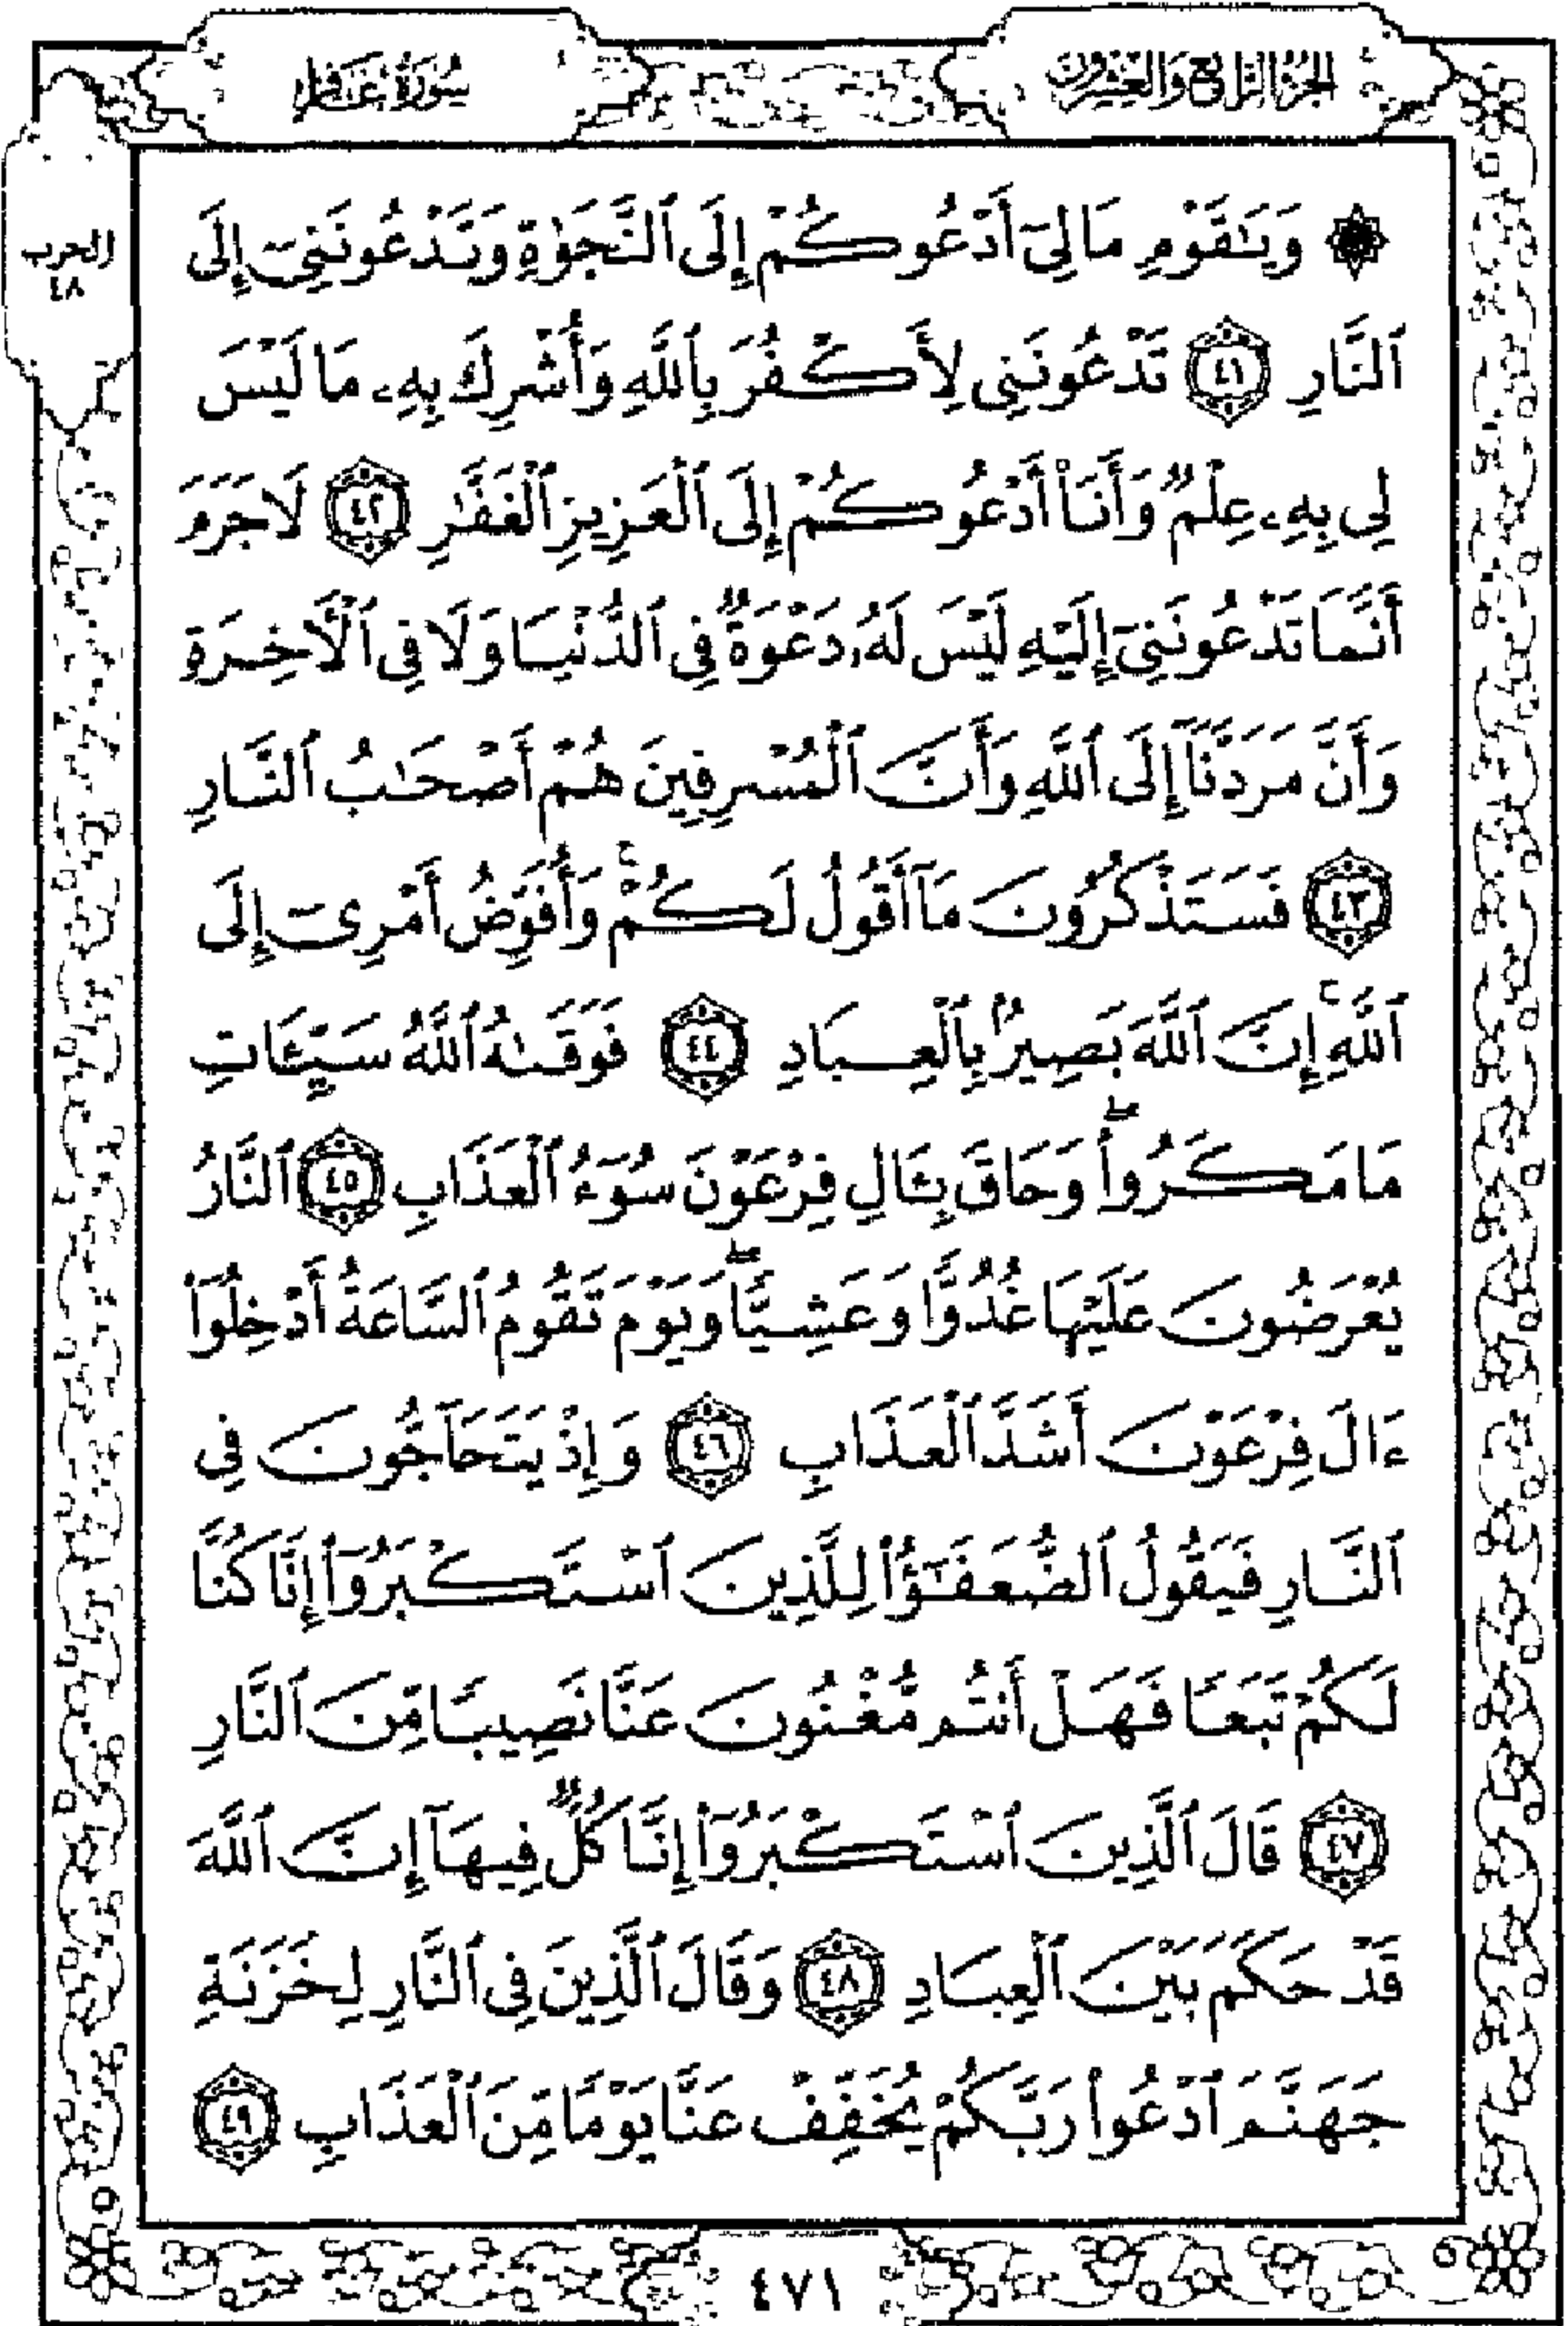 الجزء الرابع والعشرون
سورة غافر
الحزب
٤٨
۞ وَيَٰقَوْمِ مَا لِىٓ أَدْعُوكُمْ إِلَى ٱلنَّجَوٰةِ وَتَدْعُونَنِىٓ إِلَى
ٱلنَّارِ ٤١ تَدْعُونَنِى لِأَكْفُرَ بِٱللَّهِ وَأُشْرِكَ بِهِۦ مَا لَيْسَ
لِى بِهِۦ عِلْمٌ وَأَنَا۠ أَدْعُوكُمْ إِلَى ٱلْعَزِيزِ ٱلْغَفَّٰرِ ٤٢ لَا جَرَمَ
أَنَّمَا تَدْعُونَنِىٓ إِلَيْهِ لَيْسَ لَهُۥ دَعْوَةٌ فِى ٱلدُّنْيَا وَلَا فِى ٱلْأَخِرَةِ
وَأَنَّ مَرَدَّنَآ إِلَى ٱللَّهِ وَأَنَّ ٱلْمُسْرِفِينَ هُمْ أَصْحَٰبُ ٱلنَّارِ
٤٣ فَسَتَذْكُرُونَ مَآ أَقُولُ لَكُمْ ۚ وَأُفَوِّضُ أَمْرِىٓ إِلَى
ٱللَّهِ ۚ إِنَّ ٱللَّهَ بَصِيرٌۢ بِٱلْعِبَادِ ٤٤ فَوَقَىٰهُ ٱللَّهُ سَيِّـَٔاتِ
مَا مَكَرُوا۟ ۖ وَحَاقَ بِـَٔالِ فِرْعَوْنَ سُوٓءُ ٱلْعَذَابِ ٤٥ ٱلنَّارُ
يُعْرَضُونَ عَلَيْهَا غُدُوًّا وَعَشِيًّا ۖ وَيَوْمَ تَقُومُ ٱلسَّاعَةُ أَدْخِلُوٓا۟
ءَالَ فِرْعَوْنَ أَشَدَّ ٱلْعَذَابِ ٤٦ وَإِذْ يَتَحَآجُّونَ فِى
ٱلنَّارِ فَيَقُولُ ٱلضُّعَفَٰٓؤُا۟ لِلَّذِينَ ٱسْتَكْبَرُوٓا۟ إِنَّا كُنَّا
لَكُمْ تَبَعًا فَهَلْ أَنتُم مُّغْنُونَ عَنَّا نَصِيبًا مِّنَ ٱلنَّارِ
٤٧ قَالَ ٱلَّذِينَ ٱسْتَكْبَرُوٓا۟ إِنَّا كُلٌّ فِيهَآ إِنَّ ٱللَّهَ
قَدْ حَكَمَ بَيْنَ ٱلْعِبَادِ ٤٨ وَقَالَ ٱلَّذِينَ فِى ٱلنَّارِ لِخَزَنَةِ
جَهَنَّمَ ٱدْعُوا۟ رَبَّكُمْ يُخَفِّفْ عَنَّا يَوْمًا مِّنَ ٱلْعَذَابِ ٤٩
٤٧١